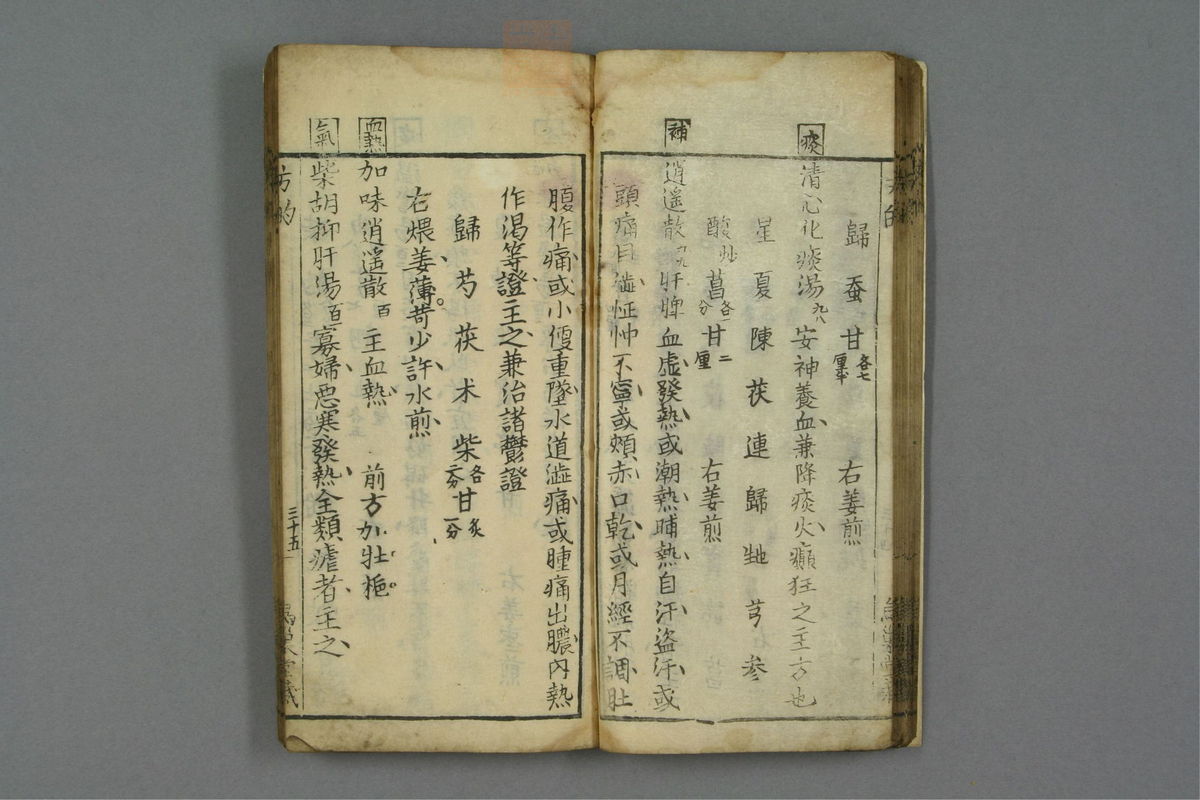 歸 蚕 甘 各七厘半 右姜煎
痰
清心化痰湯 九八 安神養血兼降痰火癲狂之主方也
星 夏 陳 茯 連 歸 芎 参
酸 炒 菖 各一分 甘 二厘 右姜煎
補
逍遥散 九九 肝脾血虛發熱或潮熱晡熱自汗盗汗或
頭痛目澁怔忡不寧或頰赤口乾或月經不調肚
腹作痛或小便重墜水道澁痛或腫痛出膿内熱
作渇等證主之兼治諸鬱證
歸 芍 茯 术 柴 各二分 甘 炙一分
右煨姜薄荷少許水煎
血熱
加味逍遥散 百 主血熱 前方加牡梔
氣
柴胡抑肝湯 百一 寡婦惡寒發熱全類瘧者主之
方的
三十五